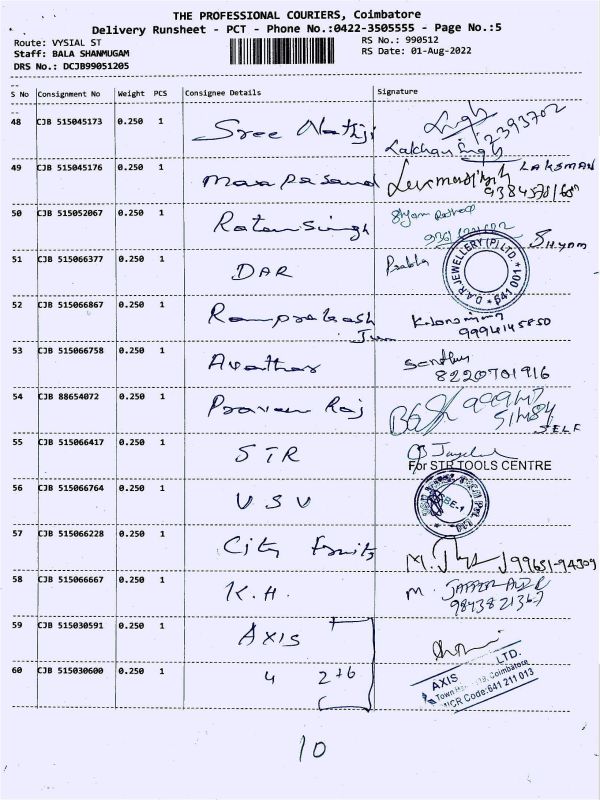 THE PROFESSIONAL COURIERS, Coimbatore
Delivery Runsheet - PCT - Phone No.:0422-3505555 - Page No.:5
Route: VYSIAL ST
RS No.: 990512
Staff: BALA SHANMUGAM
RS Date: 01-Aug-2022
DRS No.: DCJB99051205
S No Consignment No Weight PCS Consignee Details Signature
48 CJB 515045173 0.250 1 Sree Nathji
Lakhan Singh
49 CJB 515045176 0.250 1 LAKSMAN
50 CJB 515052067 0.250 1 Ratan Singh
SHYAM
51 CJB 515066377 0.250 1 DAR Prabha
D.A.R JEWELLERY (P) LTD. 641 001
52 CJB 515066867 0.250 1 Ramprakash
9994145850
53 CJB 515066758 0.250 1 Avathar
8220701916
54 CJB 88654072 0.250 1 Praveen Raj
SELF
55 CJB 515066417 0.250 1 STR
For STR TOOLS CENTRE
56 CJB 515066764 0.250 1 USV
57 CJB 515066228 0.250 1 City Fruits
99651-94309
58 CJB 515066667 0.250 1 K.H. M.
9843821367
59 CJB 515030591 0.250 1 AXIS
AXIS LTD.
60 CJB 515030600 0.250 1 4 2+6
Coimbatore
MICR Code:641 211 013
10